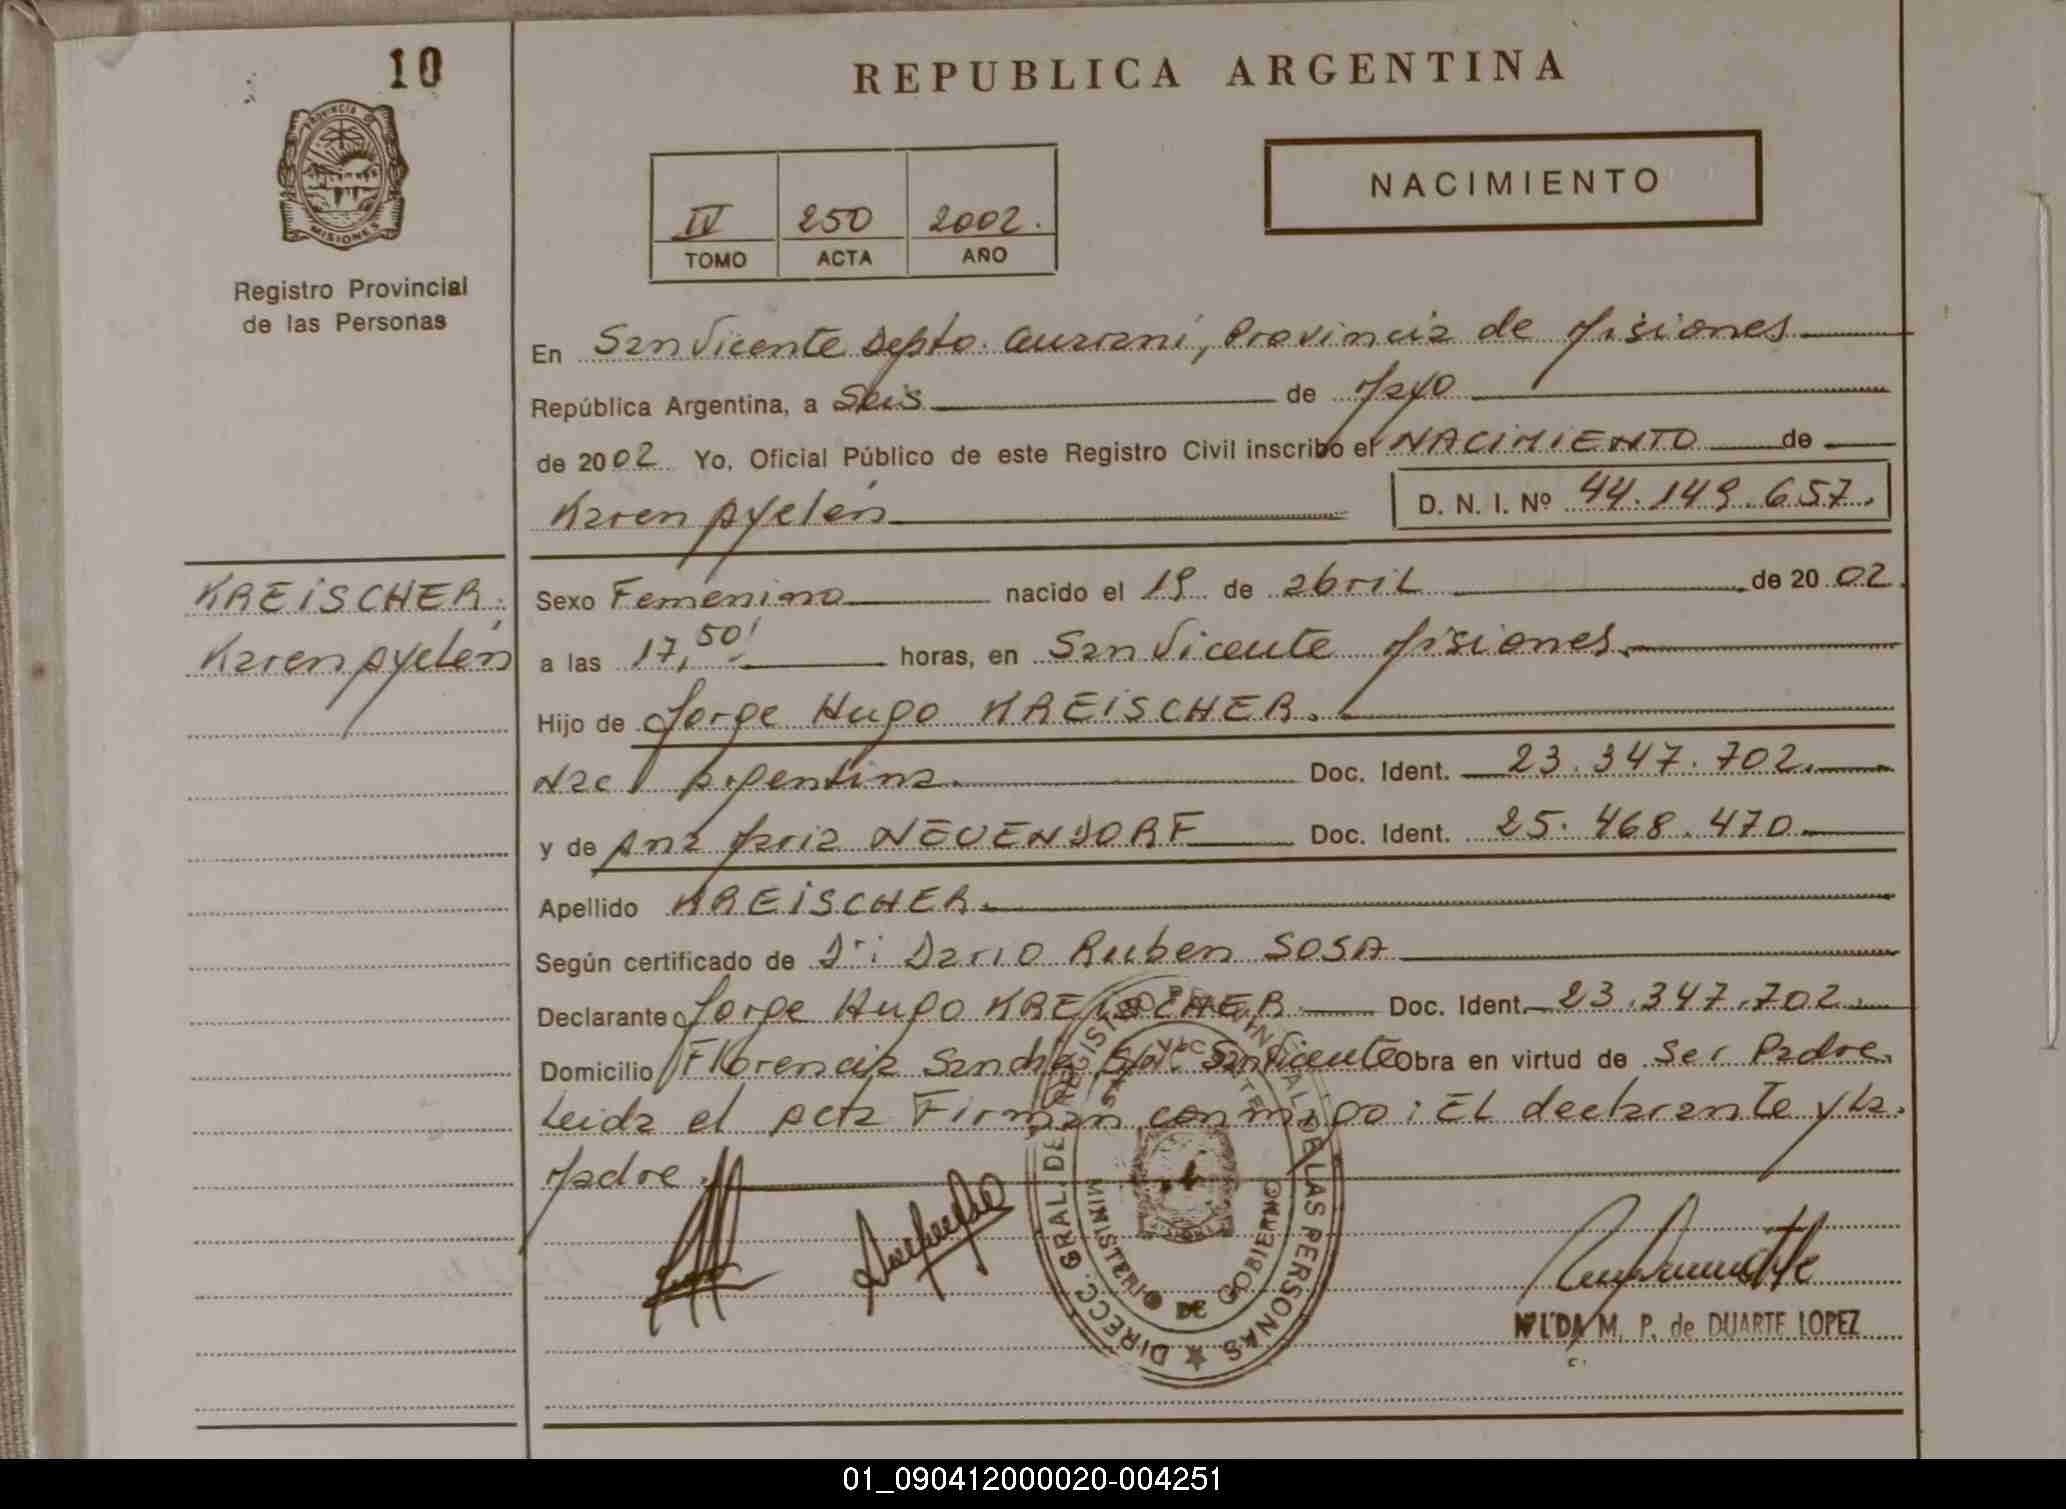 10
REPUBLICA ARGENTINA
PROVINCIA DE
MISIONES
Registro Provincial
de las Personas
NACIMIENTO
IV 250 2002.
TOMO ACTA AÑO
En San Vicente Depto. Guaraní, Provincia de Misiones
República Argentina, a Seis de Mayo
de 2002 Yo, Oficial Público de este Registro Civil inscribo el NACIMIENTO de
Karen Ayelén
D. N. I. Nº 44.149.657.
KREiSCHER.
Karen Ayelén
Sexo Femenino nacido el 19 de abril de 2002.
a las 17,50' horas, en San Vicente Misiones.
Hijo de Jorge Hugo KREiSCHER.
Nac Argentina. Doc. Ident. 23.347.702.
y de Ana Maria NEUENDORF Doc. Ident. 25.468.470
Apellido KREiSCHER.
Según certificado de Dr: Dario Ruben SOSA
Declarante Jorge Hugo KREiSCHER Doc. Ident. 23.347.702.
Domicilio Florencia Sanchez San Vicente Obra en virtud de Ser Padre.
Leida el Acta Firman conmigo: EL declarante y La
Madre.
DIRECC. GRAL. DE REGISTRO PROVINCIAL DE LAS PERSONAS
SAN VICENTE
MINISTERIO DE GOBIERNO
NILDA M. P. de DUARTE LOPEZ
01_090412000020-004251